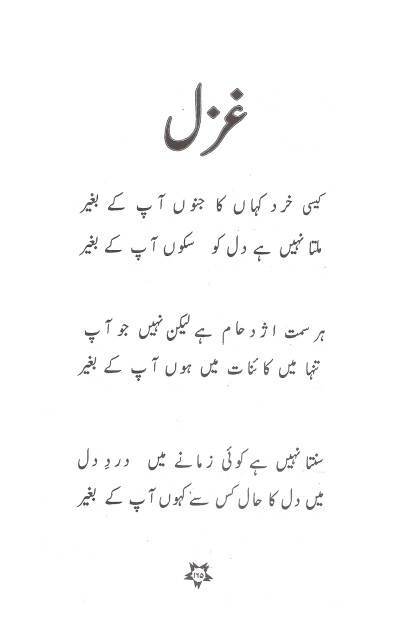 غزل
کیسی خرد کہاں کا جنوں آپ کے بغیر
ملتا نہیں ہے دل کو سکوں آپ کے بغیر
ہر سمت اژدحام ہے لیکن نہیں جو آپ
تنہا میں کائنات میں ہوں آپ کے بغیر
سنتا نہیں ہے کوئی زمانے میں دردِ دل
میں دل کا حال کس سے کہوں آپ کے بغیر
۱۲۵